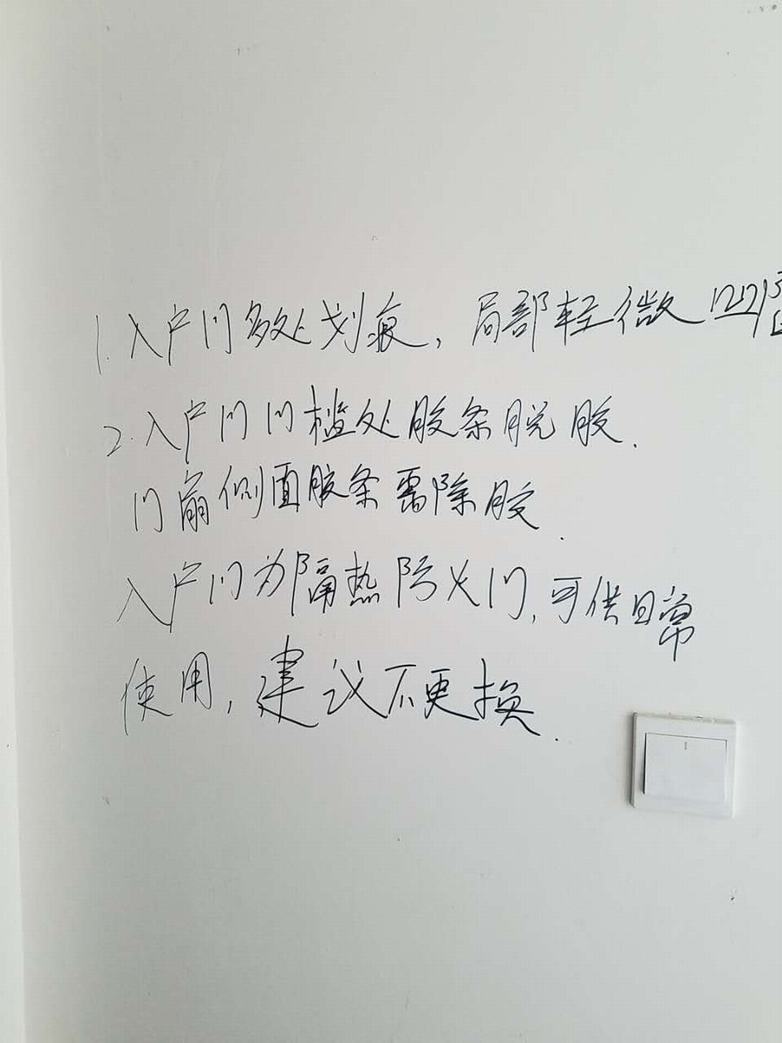 1. 入户门多处划痕，局部轻微凹陷
2. 入户门门槛处胶条脱胶.
门扇侧面胶条需除胶.
入户门为隔热防火门,可供日常
使用,建议不更换.